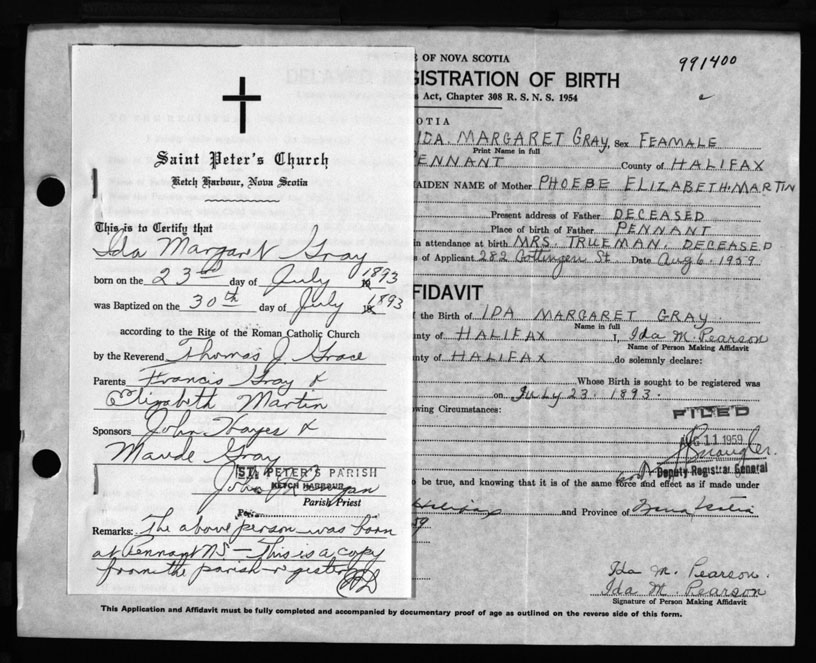 Saint Peter's Church
Ketch Harbour, Nova Scotia
This is to Certify that
Ida Margaret Gray
born on the 23rd day of July 1893
was Baptized on the 30th day of July 1893
according to the Rite of the Roman Catholic Church
by the Reverend Thomas J. Grace
Parents Francis Gray &
Elizabeth Martin
Sponsors John Hayes &
Maude Gray
ST. PETER'S PARISH
KETCH HARBOUR
Parish Priest
Remarks: The above person was born
at Pennant NS — This is a copy
from the parish register
E OF NOVA SCOTIA
991400
DELAYED REGISTRATION OF BIRTH
s Act, Chapter 308 R. S. N. S. 1954
COTIA
IDA. MARGARET GRAY, Sex FEAMALE
Print Name in full
PENNANT County of HALIFAX
MAIDEN NAME of Mother PHOEBE ELIZABETH. MARTIN
Present address of Father DECEASED
Place of birth of Father PENNANT
in attendance at birth MRS. TRUEMAN. DECEASED
s of Applicant 282 Gottingen St. Date Aug 6. 1959
FFIDAVIT
f the Birth of IDA MARGARET GRAY.
Name in full
nty of HALIFAX I, Ida M. Pearson
Name of Person Making Affidavit
nty of HALIFAX do solemnly declare:
Whose Birth is sought to be registered was
on July 23. 1893.
wing Circumstances:
FILED
AUG 11 1959
Deputy Registrar General
o be true, and knowing that it is of the same force and effect as if made under
Halifax and Province of Nova Scotia
59
Ida M. Pearson.
Ida M Pearson
Signature of Person Making Affidavit
This Application and Affidavit must be fully completed and accompanied by documentary proof of age as outlined on the reverse side of this form.